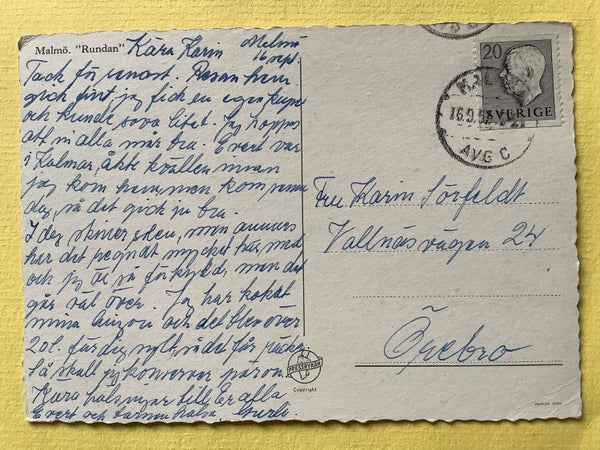 Malmö. "Rundan"
Kära Karin Malmö
16 sept.
Tack för senast. Resan hem
gick fint jag fick en egen kupé
och kunde sova litet. Jag hoppas
att ni alla mår bra. Evert var
i Kalmar, åkte kvällen innan
jag kom hem, men kom
dag, så det gick ju bra.
I dag skiner solen, men annars
har det regnat mycket här, med
och jag är så förkyld, men det
går väl över. Jag har kokat
mina lingon och det blev över
20 l. färdig sylt, så det får räcka
så skall jag konservera päron.
Kära hälsningar till Er alla
Evert och barnen hälsa. Gurli.
20
SVERIGE
MALMÖ
16.9.5
AVG C
Fru Karin Sörfeldt
Vallnäsvägen 24
Örebro
PRESSBYRÅN
Copyright